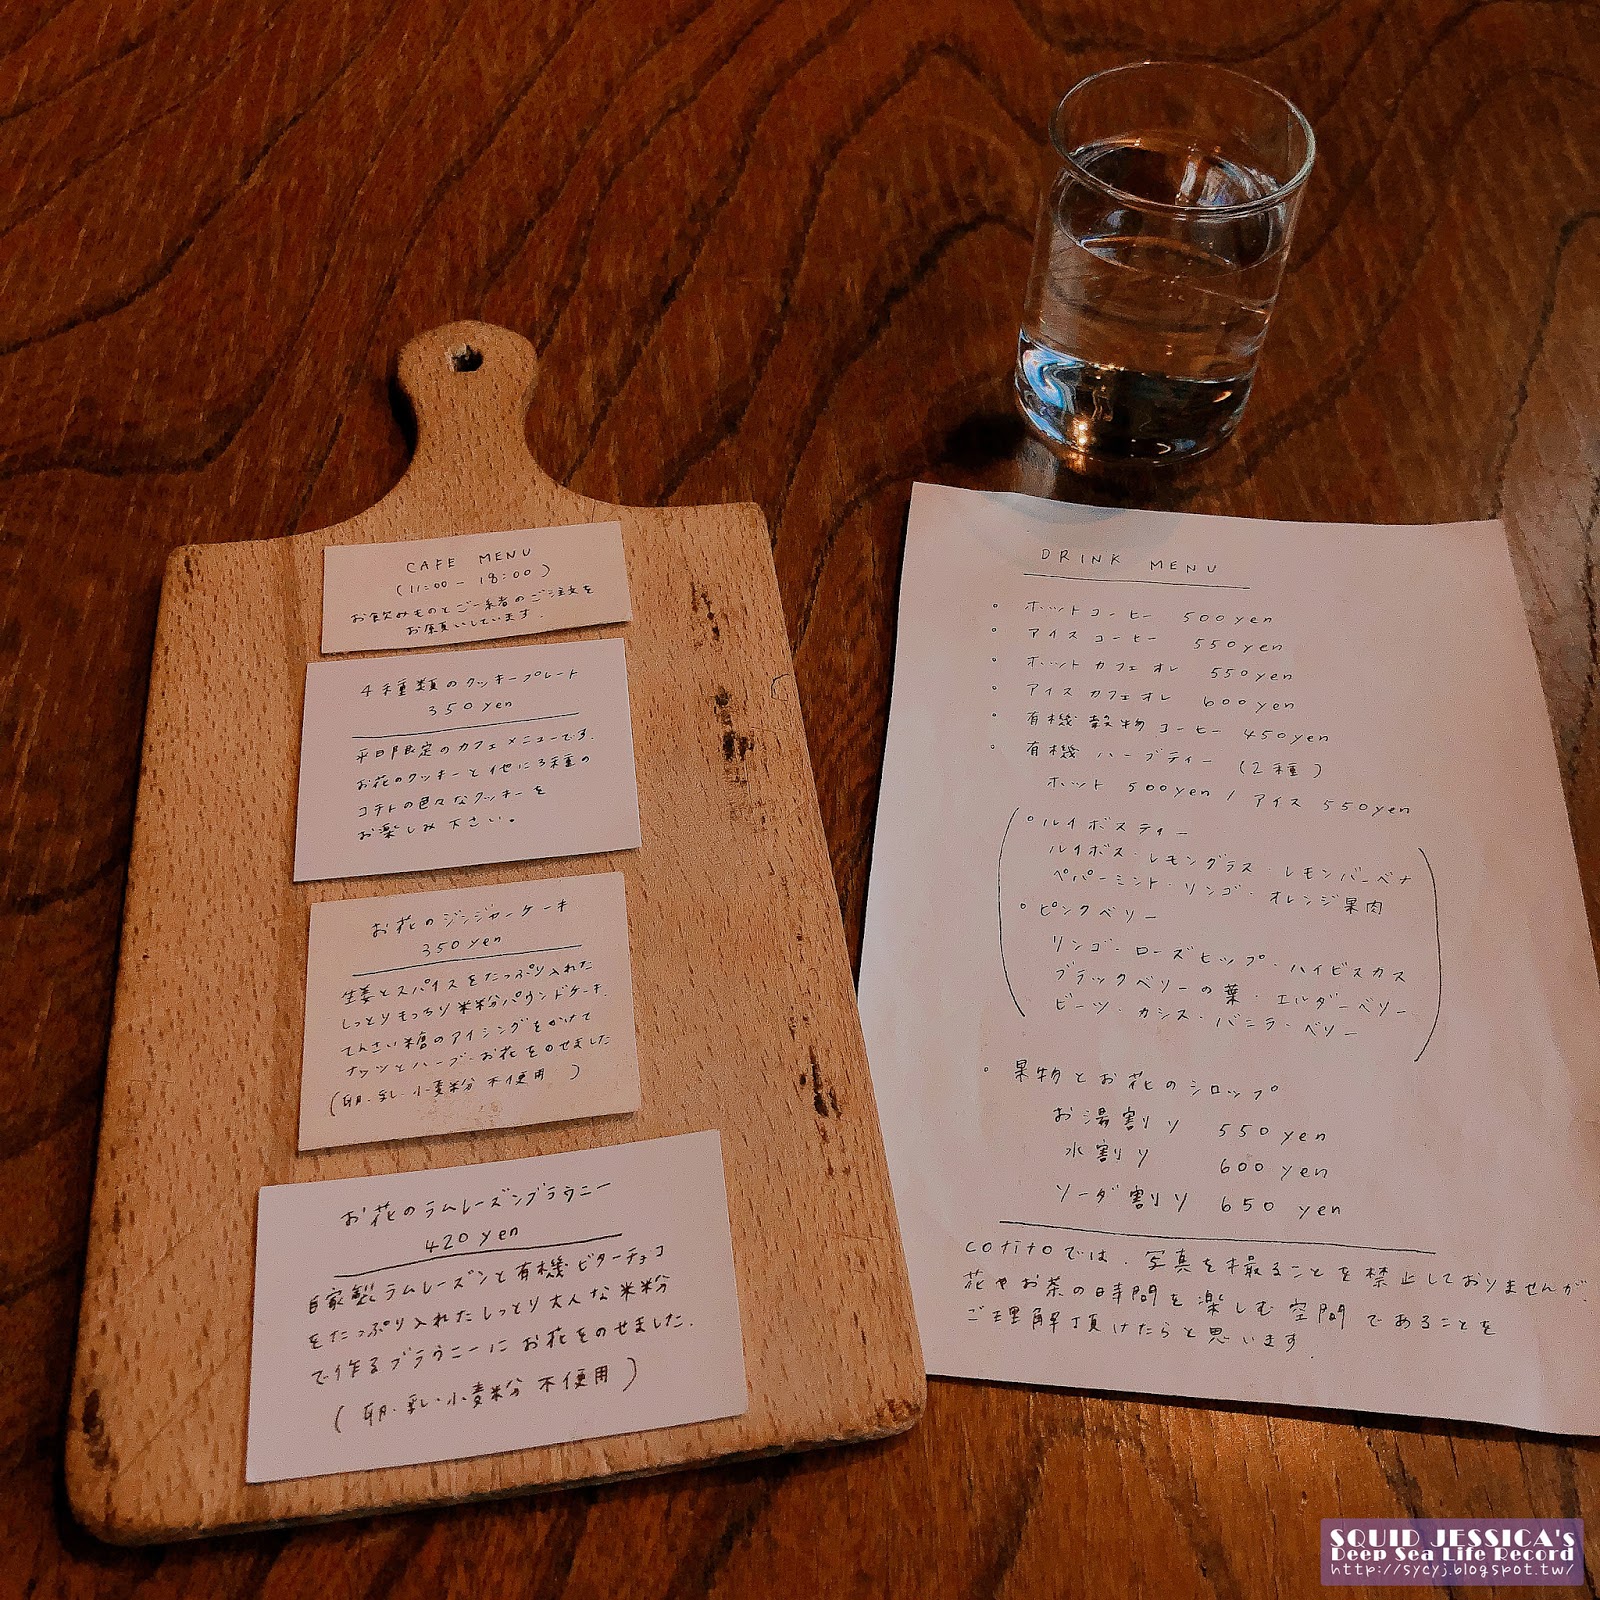 CAFE MENU
(11:00 - 18:00)
お飲みものとご一緒のご注文を
お願いしています.
4種類のクッキープレート
350yen
平日限定のカフェメニューです.
お花のクッキーと他に3種の
コチトの色々なクッキーを
お楽しみ下さい。
お花のジンジャーケーキ
350yen
生姜とスパイスをたっぷり入れた
しっとりもっちり米粉パウンドケーキ.
てんさい糖のアイシングをかけて
ナッツとハーブ・お花をのせました
(卵・乳・小麦粉 不使用)
お花のラムレーズンブラウニー
420yen
自家製ラムレーズンと有機ビターチョコ
をたっぷり入れたしっとり大人な米粉
で作るブラウニーにお花をのせました.
(卵・乳・小麦粉 不使用)
DRINK MENU
・ホットコーヒー 500yen
・アイスコーヒー 550yen
・ホットカフェオレ 550yen
・アイスカフェオレ 600yen
・有機穀物コーヒー 450yen
・有機ハーブティー (2種)
ホット 500yen / アイス 550yen
・ルイボスティー
ルイボス・レモングラス・レモンバーベナ
ペパーミント・リンゴ・オレンジ果肉
・ピンクベリー
リンゴ・ローズヒップ・ハイビスカス
ブラックベリーの葉・エルダーベリー
ビーツ・カシス・バニラ・ベリー
・果物とお花のシロップ
お湯割り 550yen
水割り 600yen
ソーダ割り 650yen
cotitoでは、写真を撮ることを禁止しておりませんが、
花やお茶の時間を楽しむ空間であることを
ご理解頂けたらと思います.
SQUID JESSICA's
Deep Sea Life Record
http://sycyj.blogspot.tw/